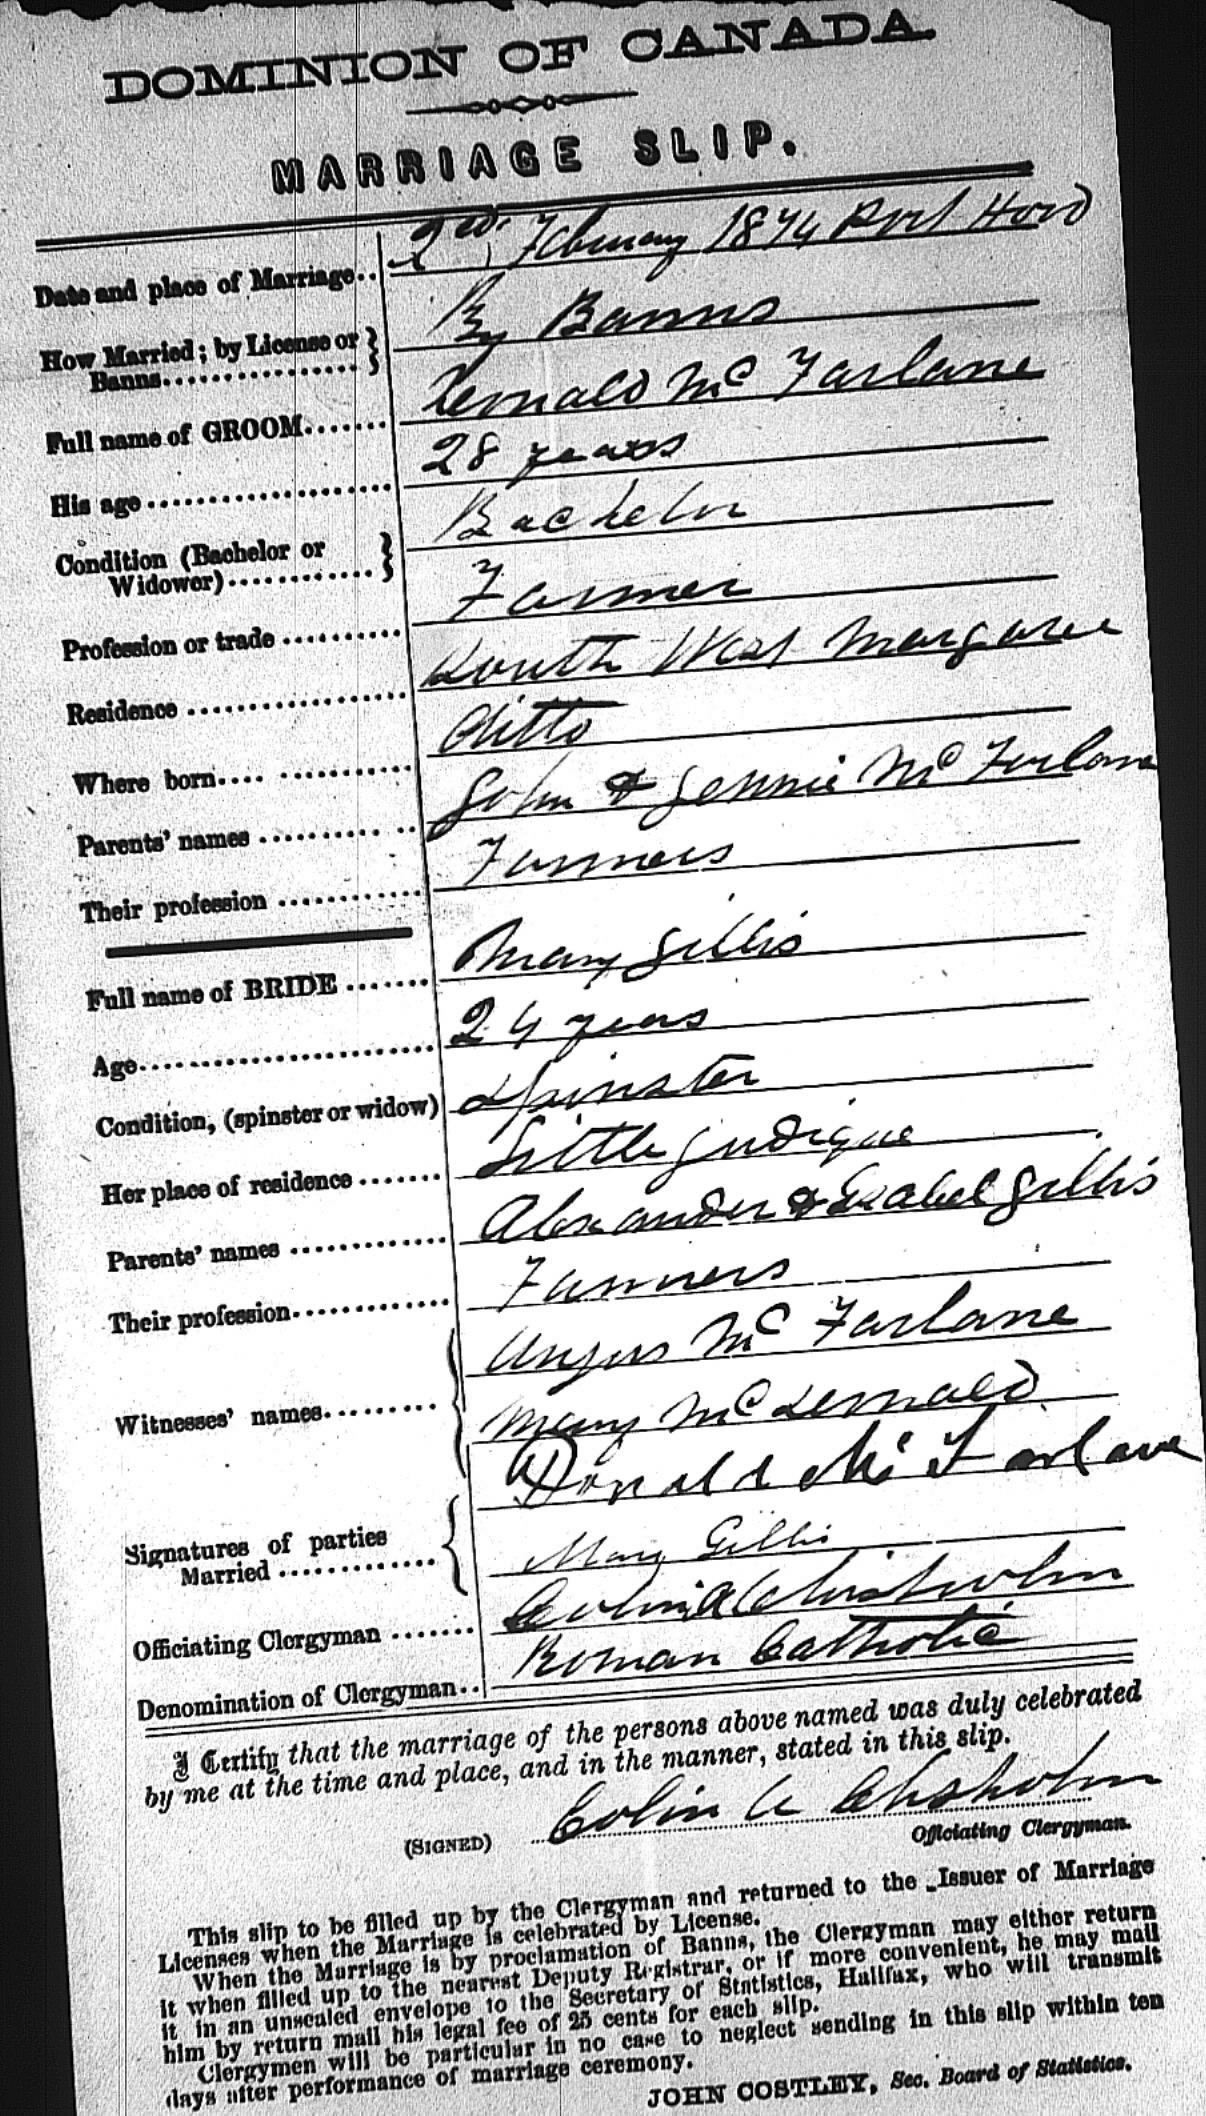 DOMINION OF CANADA.
MARRIAGE SLIP.
Date and place of Marriage.. 2nd, February 1874 Port Hood
How Married; by License or } By Banns
Banns
Full name of GROOM....... Donald Mc Farlane
His age 28 years
Condition (Bachelor or } Bachelor
Widower)
Profession or trade Farmer
Residence South West Margaree
Where born.... Ditto
Parents' names John & Jennie Mc Farlane
Their profession Farmers
Full name of BRIDE Mary Gillis
Age 24 years
Condition, (spinster or widow) Spinster
Her place of residence Little Judique
Parents' names Alexander & Isabel Gillis
Their profession Farmers
Witnesses' names { Angus Mc Farlane
Mary Mc Donald
Signatures of parties { Donald Mc Farlane
Married Mary Gillis
Officiating Clergyman Colin A Chisholm
Denomination of Clergyman.. Roman Catholic
I Certify that the marriage of the persons above named was duly celebrated
by me at the time and place, and in the manner, stated in this slip.
(SIGNED) Colin A Chisholm
Officiating Clergyman.
This slip to be filled up by the Clergyman and returned to the Issuer of Marriage
Licenses when the Marriage is celebrated by License.
When the Marriage is by proclamation of Banns, the Clergyman may either return
it when filled up to the nearest Deputy Registrar, or if more convenient, he may mail
it in an unsealed envelope to the Secretary of Statistics, Halifax, who will transmit
him by return mail his legal fee of 25 cents for each slip.
Clergymen will be particular in no case to neglect sending in this slip within ten
days after performance of marriage ceremony.
JOHN COSTLEY, Sec. Board of Statistics.